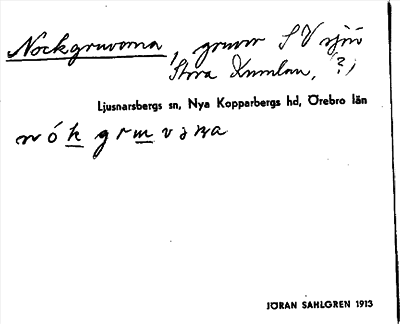 Nockgruvorna, gruvor S V sjön
Stora Kumlan, (?)
Ljusnarsbergs sn, Nya Kopparbergs hd, Örebro län
JÖRAN SAHLGREN 1913